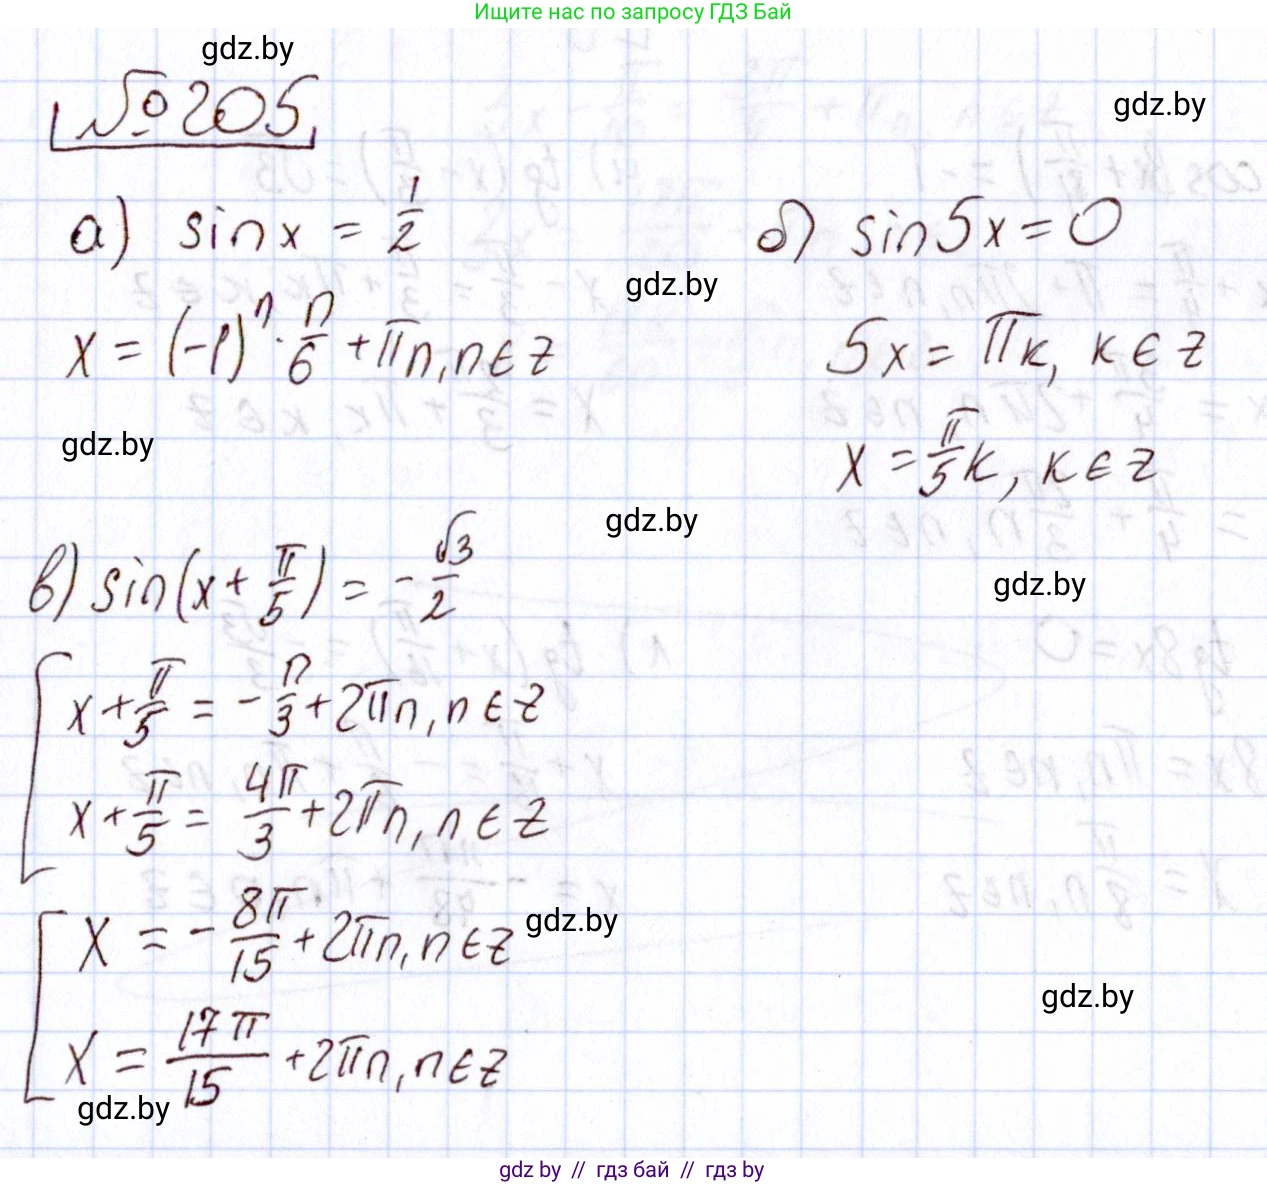 Ищите нас по запросу ГДЗ Бай
gdz.by
№205
gdz.by
а) sin x = 1/2
б) sin 5x = 0
gdz.by
x = (-1)^n · π/6 + πn, n ∈ z
5x = πk, k ∈ z
gdz.by
x = π/5 k, k ∈ z
gdz.by
в) sin(x + π/5) = - √3/2
gdz.by
x + π/5 = - π/3 + 2πn, n ∈ z
x + π/5 = 4π/3 + 2πn, n ∈ z
x = - 8π/15 + 2πn, n ∈ z
gdz.by
gdz.by
x = 17π/15 + 2πn, n ∈ z
gdz.by
gdz by // гдз бай // гдз by